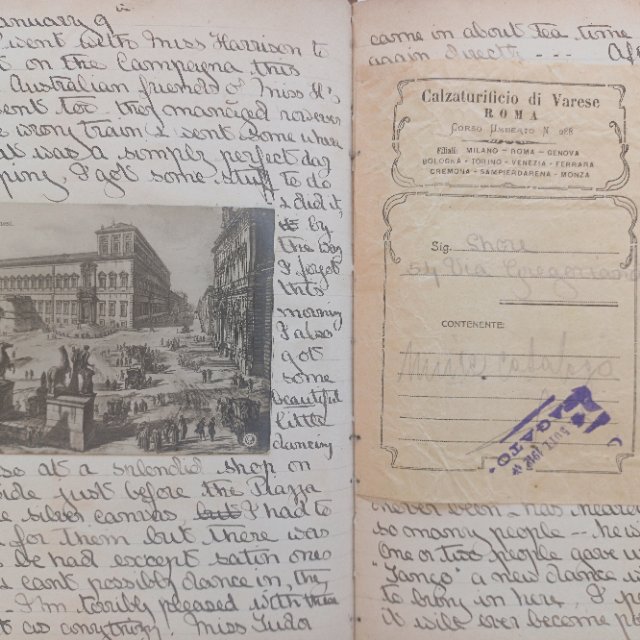 January 9
I went with Miss Harrison to
on the Campagna this
Australian friend of Miss H's
went too they managed however
wrong train & went somewhere
it was a simply perfect day
I got some stuff to do
& did it,
by
the way
I forgot
this
morning
I also
got
some
beautiful
little
dancing
at a splendid shop on
side just before the Piazza
silver canvas, but I had to
for them but there was
he had except satin ones
cant possibly dance in, they
I'm terribly pleased with
as anything. Miss Tudor
came in about tea time
again directly ---
Calzaturificio di Varese
ROMA
CORSO UMBERTO N.
Filiali: MILANO - ROMA - GENOVA
BOLOGNA - TORINO - VENEZIA - FERRARA
CREMONA - SAMPIERDARENA - MONZA
Sig. Shore
54 Via Gregoriana
CONTENENTE:
PAGATO
never been - has
so many people --
one or two people gave
"Tango" a new dance
to bring in here. I
it will ever become